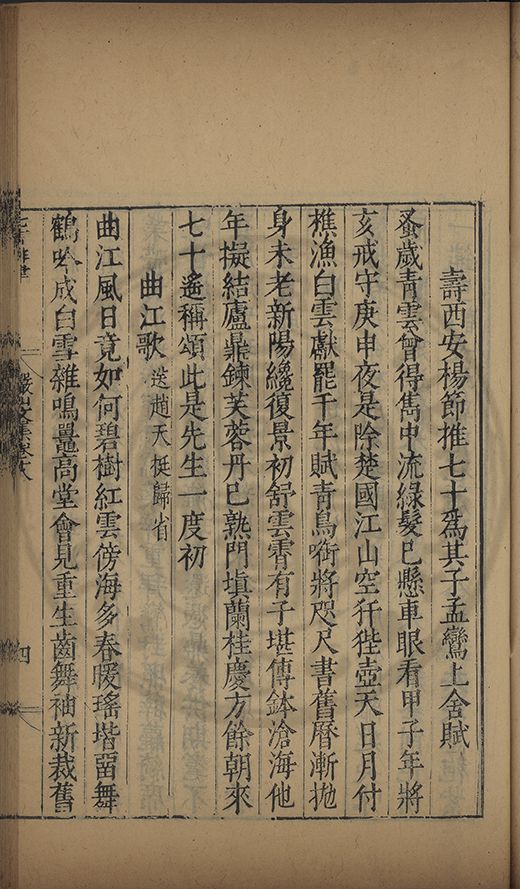 壽西安楊節推七十爲其子孟鸞上舍賦
蚤歲青雲會得雋中流綠髮已懸車眼看甲子年將
亥戒守庚申夜是除楚國江山空犴狴壺天日月付
樵漁白雲獻罷千年賦青鳥啣將咫尺書舊曆漸拋
身未老新陽纔復景初舒雲霄有子堪傳鉢滄海他
年擬結廬鼎鍊芙蓉丹已熟門塡蘭桂慶方餘朝來
七十遙稱頌此是先生一度初
曲江歌 送趙天挺歸省
曲江風日竟如何碧樹紅雲傍海多春暖瑤堦留舞
鶴吟成白雪雜鳴鼉高堂會見重生齒舞袖新裁舊
四